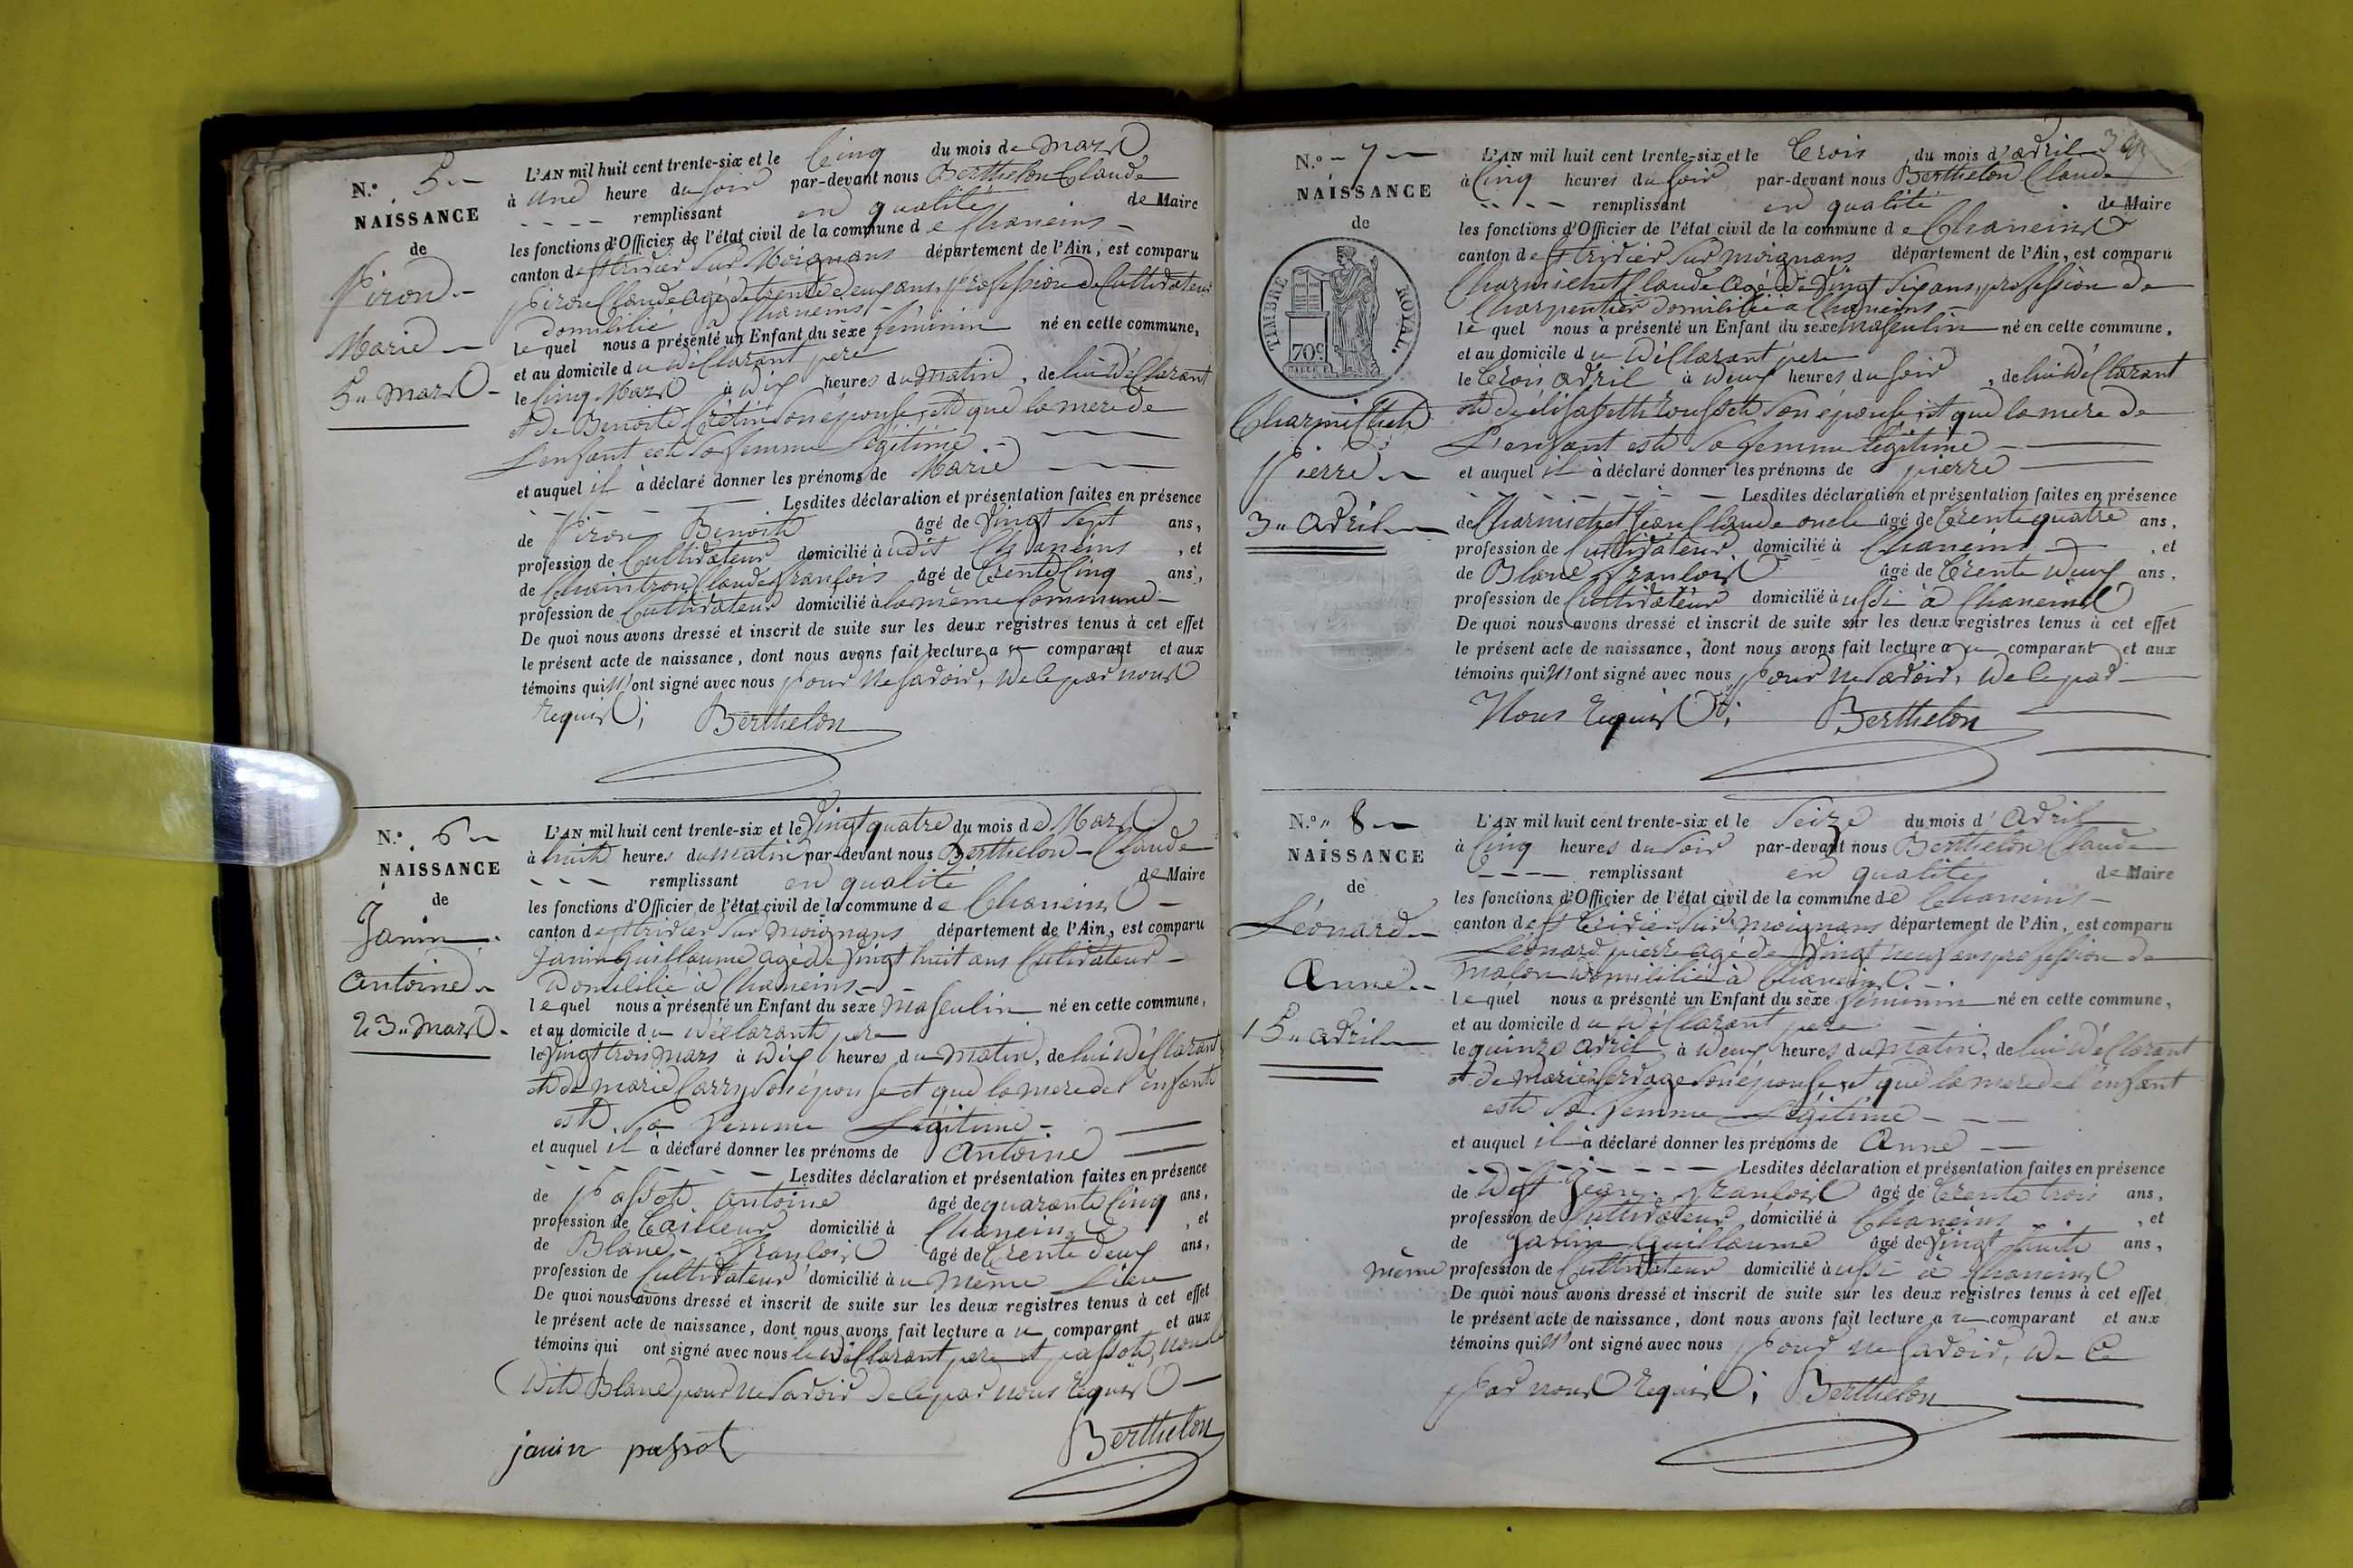 N.º 5
NAISSANCE
de
Piron
Marie
5 „ mars
L'AN mil huit cent trente-six et le Cinq du mois de mars
à une heure du soir par-devant nous Berthelon Claude
remplissant en qualité de Maire
les fonctions d'Officier de l'état civil de la commune de Chaneins
canton de st trivier sur Moignans département de l'Ain, est comparu
piron Claude agé de trente deux ans, profession de Cultivateur
domicilié à Chaneins
lequel nous a présenté un Enfant du sèxe féminin né en cette commune,
et au domicile du déclarant père
le cinq Mars à dix heures du matin, de lui déclarant
et de Benoite Crétin son épouse, et que la mere de
L'enfant est sa femme légitime
et auquel il à déclaré donner les prénoms de Marie
Lesdites déclaration et présentation faites en présence
de Piron Benoit âgé de vingt sept ans,
profession de Cultivateur domicilié à udit Chaneins, et
de Chaintron Claude françois âgé de trente cinq ans,
profession de Cultivateur domicilié à la même commune
De quoi nous avons dressé et inscrit de suite sur les deux registres tenus à cet effet
le présent acte de naissance, dont nous avons fait lecture au comparant et aux
témoins qui n'ont signé avec nous pour ne savoir, de ce par nous
requis; Berthelon
N.º 6
NAISSANCE
de
Janin
antoine
23 „ mars
L'AN mil huit cent trente-six et le vingt quatre du mois de Mars
à huit heures du matin par-devant nous Berthelon Claude
remplissant en qualité de Maire
les fonctions d'Officier de l'état civil de la commune de Chaneins
canton de st trivier sur moignans département de l'Ain, est comparu
Janin Guillaume agé de vingt huit ans Cultivateur
domicilié à Chaneins
lequel nous à présenté un Enfant du sèxe masculin né en cette commune,
et au domicile du déclarant père
le vingt trois mars à dix heures du matin, de lui déclarant
et de marie Carry son épouse et que la mere de l'enfant
est sa femme Légitime
et auquel il à déclaré donner les prénoms de antoine
Lesdites déclaration et présentation faites en présence
de Passot antoine âgé de quarante cinq ans,
profession de Tailleur domicilié à Chaneins, et
de Blanc françois âgé de trente deux ans,
profession de Cultivateur domicilié au même Lieu
De quoi nous avons dressé et inscrit de suite sur les deux registres tenus à cet effet
le présent acte de naissance, dont nous avons fait lecture au comparant et aux
témoins qui ont signé avec nous le déclarant père et passot, non le
dit Blanc pour ne savoir de ce par nous requis
janin passot Berthelon
N.º 7
NAISSANCE
de
TIMBRE ROYAL.
70c
Charmichet
Pierre
3 „ avril
L'AN mil huit cent trente-six et le trois du mois d'avril
à Cinq heures du soir par-devant nous Berthelon Claude
remplissant en qualité de Maire
les fonctions d'Officier de l'état civil de la commune de Chaneins
canton de st trivier sur moignans département de l'Ain, est comparu
Charmichet Claude agé de vingt six ans, profession de
Charpentier domicilié à Chaneins
lequel nous a présenté un Enfant du sèxe masculin né en cette commune,
et au domicile du déclarant père
le trois avril à deux heures du soir, de lui déclarant
et de élisabeth rousset son épouse, et que la mere de
L'enfant est sa femme légitime
et auquel il à déclaré donner les prénoms de pierre
Lesdites déclaration et présentation faites en présence
de Charmichet Jean Claude oncle âgé de trente quatre ans,
profession de Cultivateur domicilié à Chaneins, et
de Blanc françois âgé de trente deux ans,
profession de Cultivateur domicilié à ussi à Chaneins
De quoi nous avons dressé et inscrit de suite sur les deux registres tenus à cet effet
le présent acte de naissance, dont nous avons fait lecture au comparant et aux
témoins qui n'ont signé avec nous pour ne savoir, de ce par
Nous requis; Berthelon
N.º 8
NAISSANCE
de
Léonard
Anne
15 „ avril
L'AN mil huit cent trente-six et le seize du mois d'avril
à Cinq heures du soir par-devant nous Berthelon Claude
remplissant en qualité de Maire
les fonctions d'Officier de l'état civil de la commune de Chaneins
canton de st trivier sur moignans département de l'Ain, est comparu
Léonard pierre agé de vingt neuf ans profession de
maçon domicilié à Chaneins
lequel nous a présenté un Enfant du sèxe féminin né en cette commune,
et au domicile du déclarant père
le quinze avril à deux heures du matin, de lui déclarant
et de marie servage son épouse, et que la mere de l'enfant
est sa femme Légitime
et auquel il à déclaré donner les prénoms de Anne
Lesdites déclaration et présentation faites en présence
de Jean françois âgé de trente trois ans,
profession de Cultivateur domicilié à Chaneins, et
de Janin Guillaume âgé de vingt huit ans,
même profession de Cultivateur domicilié à ussi à Chaneins
De quoi nous avons dressé et inscrit de suite sur les deux registres tenus à cet effet
le présent acte de naissance, dont nous avons fait lecture au comparant et aux
témoins qui n'ont signé avec nous pour ne savoir, de ce
par nous requis; Berthelon